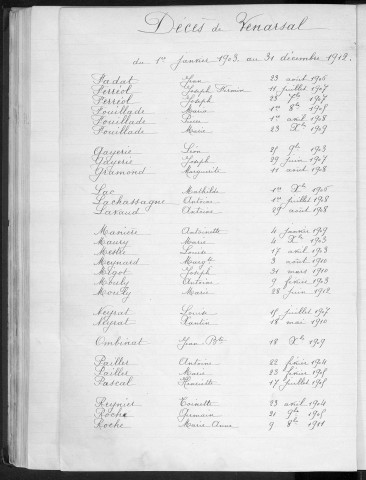 Décès de Venarsal
du 1er Janvier 1903 au 31 décembre 1912.
Fadat Léon 23 août 1906
Ferriol Joseph Firmin 11 juillet 1907
Ferriol Joseph 25 7bre 1907
Fouillade Maria 1er 8bre 1908
Fouillade 1er avril 1908
Fouillade Marie 23 Xbre 1909
Gayerie Léon 25 9bre 1903
Gayerie Joseph 29 juin 1907
Gramond Marguerite 11 août 1908
Lac Mathilde 1er Xbre 1906
Lachassagne Antoine 1er juillet 1908
Lavaud Antoine 29 août 1908
Manière Antoinette 4 janvier 1909
Maury Marie 4 Xbre 1903
Louise 17 avril 1903
Meynard Margte 3 août 1910
Migot Joseph 31 mars 1910
Antoine 9 février 1903
Marie 28 juin 1912
Neyrat Louise 15 juillet 1907
Neyrat 18 mai 1910
Ombinat Jean Bte 18 Xbre 1909
Pailler Antoine 22 février 1904
Pailler Marie 23 février 1905
Pascal Henriette 17 juillet 1905
Reynier Toinette 23 avril 1904
Roche Germain 21 9bre 1905
Roche Marie Anne 9 8bre 1911